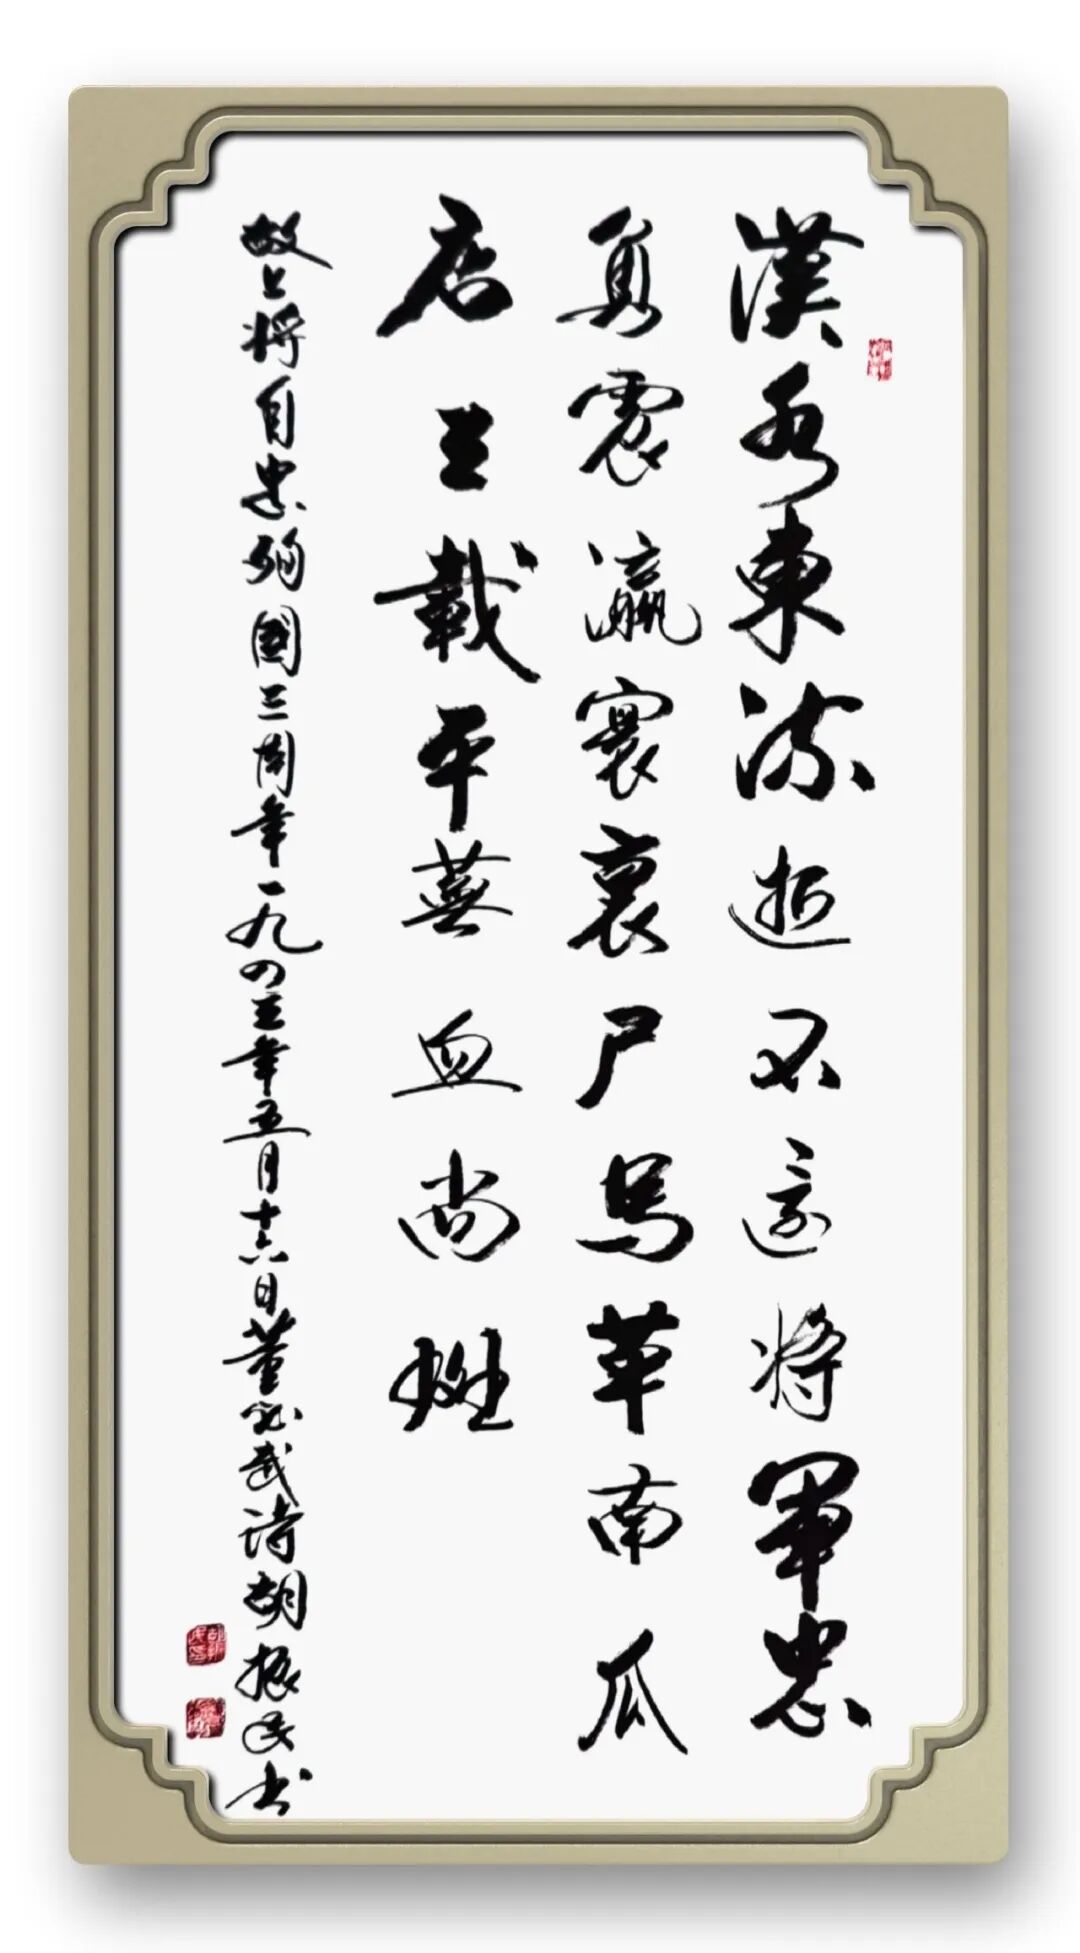 漢水東流逝不還將軍忠
勇震瀛寰裹尸馬革南瓜
店三載平蕪血尚斑
故上将自忠殉國三周年一九四三年五月十六日董必武诗胡振民书